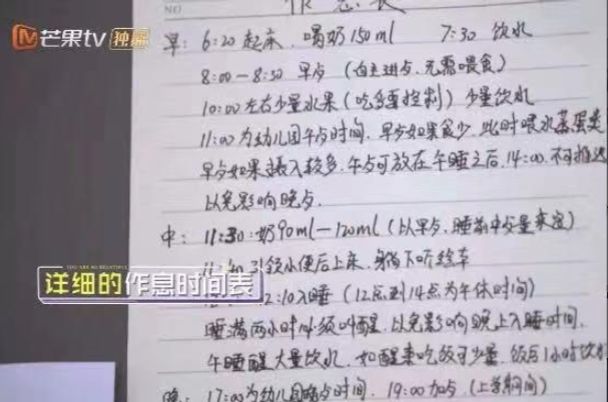 NO
芒果tv 独播
早: 6:20起床、喝奶150ml 7:30 饮水
8:00-8:30 早点 (自主进点,无需喂食)
10:00左右少量水果(吃多要控制) 少量饮水
11:00为幼儿园午点时间,早点如果食少,此时喂水蒸蛋类
早点如果摄入较多,午点可放在午睡之后,14:00,不可推迟
以免影响晚点.
中: 11:30:奶90ml-120ml(以早点、睡前中
小便后上床,
YOU ARE SO BEAUTIFUL
详细的作息时间表
2:10入睡 (12点到14点为午休时间)
睡满两小时必须叫醒,以免影响晚上入睡时间.
午睡醒大量饮水,如醒来吃饭可少量,饭后1小时饮
晚: 17:00为幼儿园晚点时间, 19:00加点(上学期间)